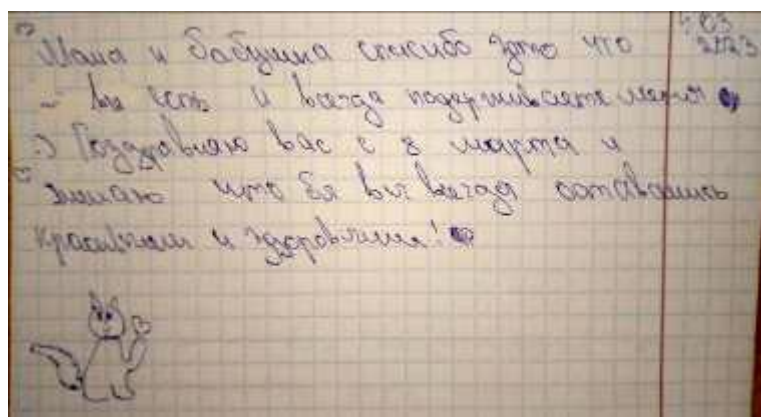 Мама и бабушка спасибо зато что
вы есть и всегда подерживаете меня
:) Поздравляю вас с 8 марта и
желаю что бя вы всегад оставались
красивыми и здоровыми!
03
2023